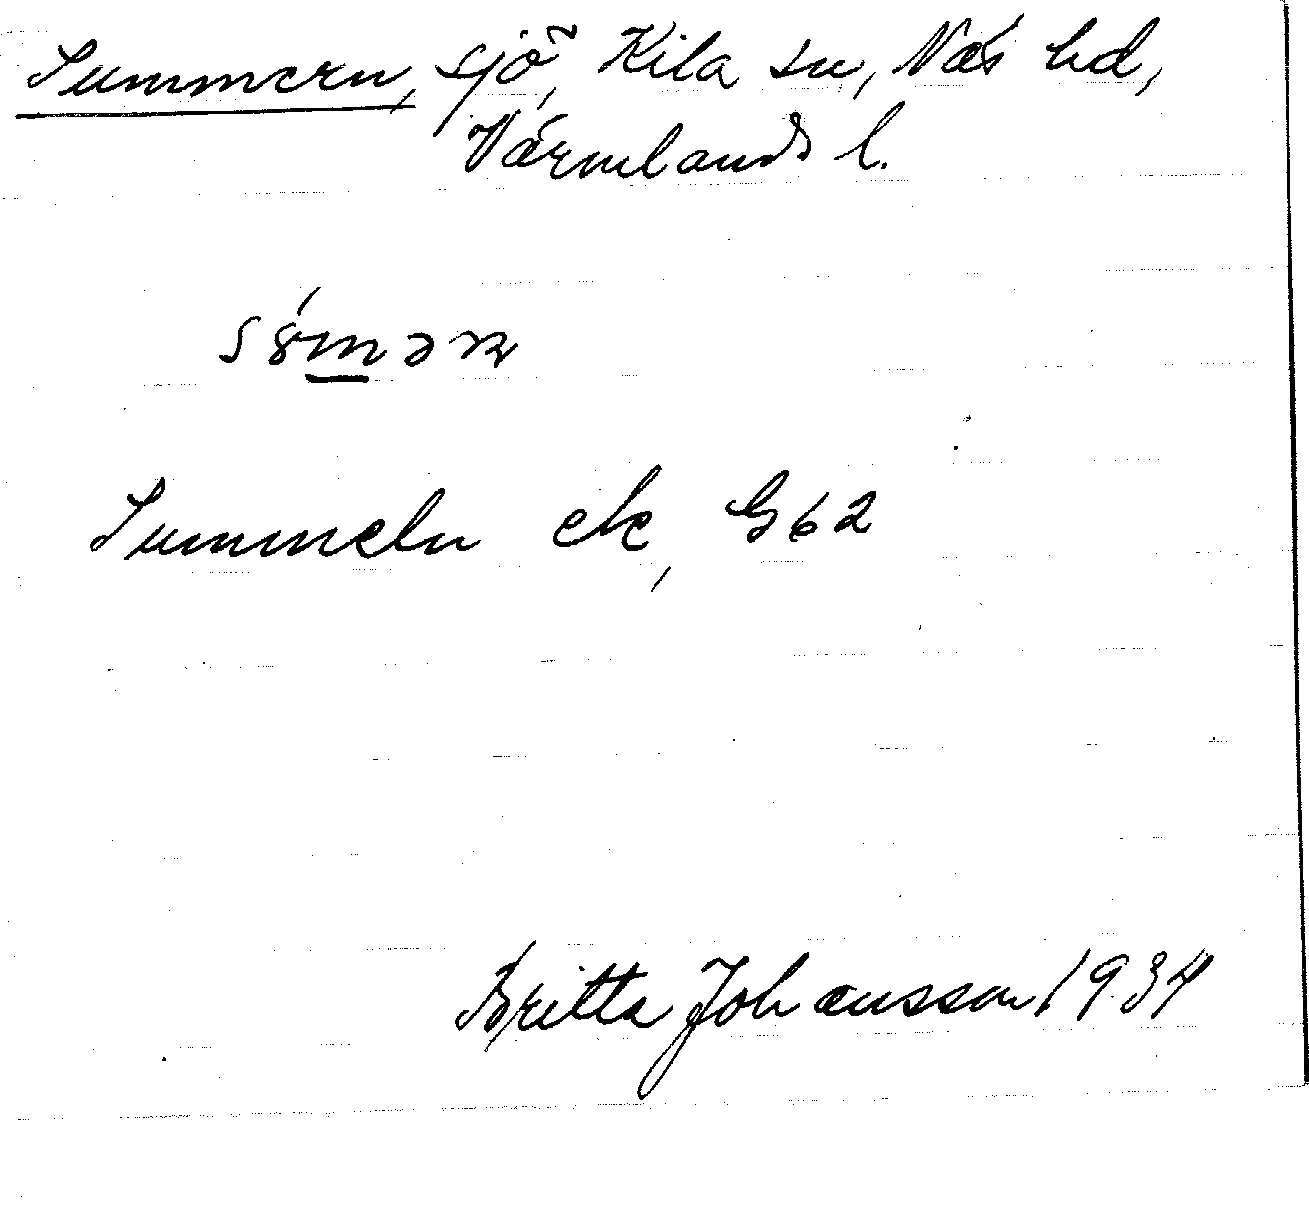 Summern, sjö, Kila sn, Näs hd,
Värmlands l.
sómən
Summeln ek, G62
Britta Johansson 1934